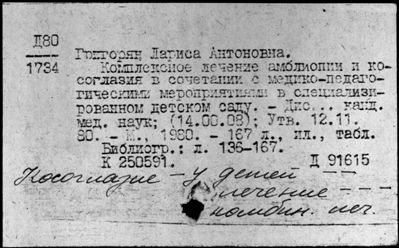 Д80
1734
Григорян Лариса Антоновна.
Комплексное лечение амблиопии и ко-
соглазия в сочетании с медико-педаго-
гическими мероприятиями в специализи-
рованном детском саду. - Дис... канд.
мед. наук; (14.00.08); Утв. 12.11.
80. - М., 1980. - 167 л., ил., табл.
Библиогр.: л. 136-167.
К 250591. Д 91615
Косоглазие - у детей --
лечение ---
комбин. леч.